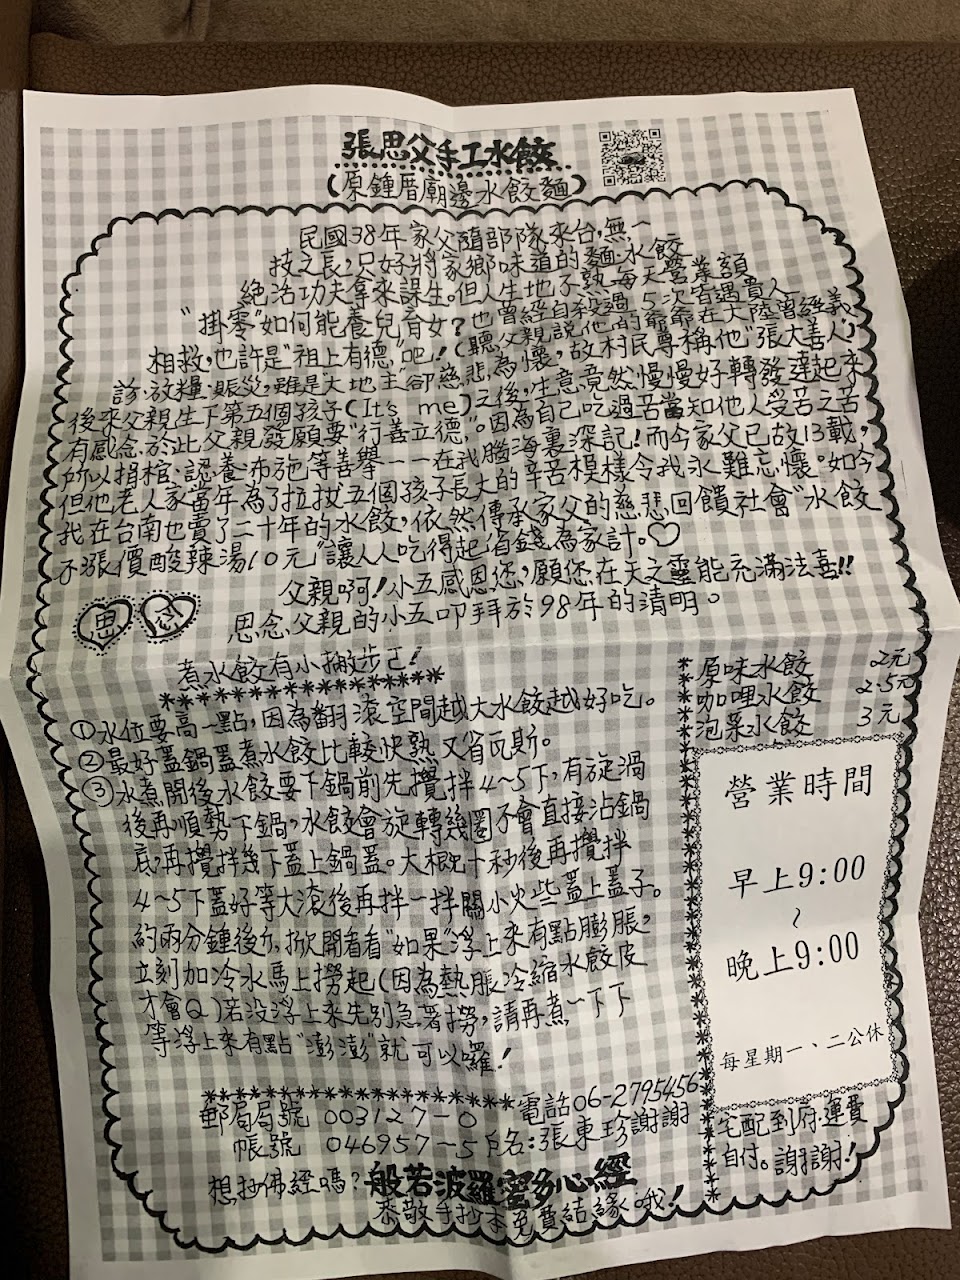 張思父手工水餃
(原鐘厝廟邊水餃麵)
民國38年家父隨部隊來台,無一
技之長,只好將家鄉味道的麵、水餃
絕活功夫拿來謀生。但人生地不熟,每天營業額
"掛零"如何能養兒育女?也曾經自殺過5次皆遇貴人
相救,也許是"祖上有德"吧!(聽父親說他的爺爺在大陸曾經義
診、放糧、賑災,雖是"大地主"卻慈悲為懷,故村民尊稱他"張大善人")
後來父親生下第五個孩子(It's me)之後,生意竟然慢慢好轉發達起來
有感念於此父親發願要"行善立德"。因為自己吃過苦當知他人受苦之苦
所以捐棺、認養、布施等善舉一一在我腦海裏深記!而今家父已故13載,
但他老人家當年為了拉拔五個孩子長大的辛苦模樣令我永難忘懷。如今
我在台南也賣了二十年的水餃,依然傳承家父的慈悲回饋社會"水餃
不漲價酸辣湯10元"讓人人吃得起省錢為家計。♡
父親啊!小五感恩您,願您在天之靈能充滿法喜!!
思念
思念父親的小五叩拜於98年的清明。
煮水餃有小撇步ㄛ!
①水位要高一點,因為翻滾空間越大水餃越好吃。
②最好蓋鍋蓋煮水餃比較快熟又省瓦斯。
③水煮開後水餃要下鍋前先攪拌4~5下,有旋渦
後再順勢下鍋,水餃會旋轉幾圈不會直接沾鍋
底,再攪拌幾下蓋上鍋蓋。大概十秒後再攪拌
4~5下蓋好等大滾後再拌一拌關小火些蓋上蓋子。
約兩分鐘後ㄌ,掀開看看"如果"浮上來有點膨脹,
立刻加冷水馬上撈起(因為熱脹冷縮水餃皮
才會Q)若沒浮上來先別急著撈,請再煮一下下
等浮上來有點"澎澎"就可以囉!
原味水餃 2元
咖哩水餃 2.5元
泡菜水餃 3元
營業時間
早上9:00
~
晚上9:00
每星期一、二公休
宅配到府、運費
自付。謝謝!
電話06-2795456
郵局局號 003127-0
帳號 046957-5 戶名:張東珍謝謝
想抄佛經嗎?般若波羅蜜多心經
恭敬手抄本免費結緣哦!